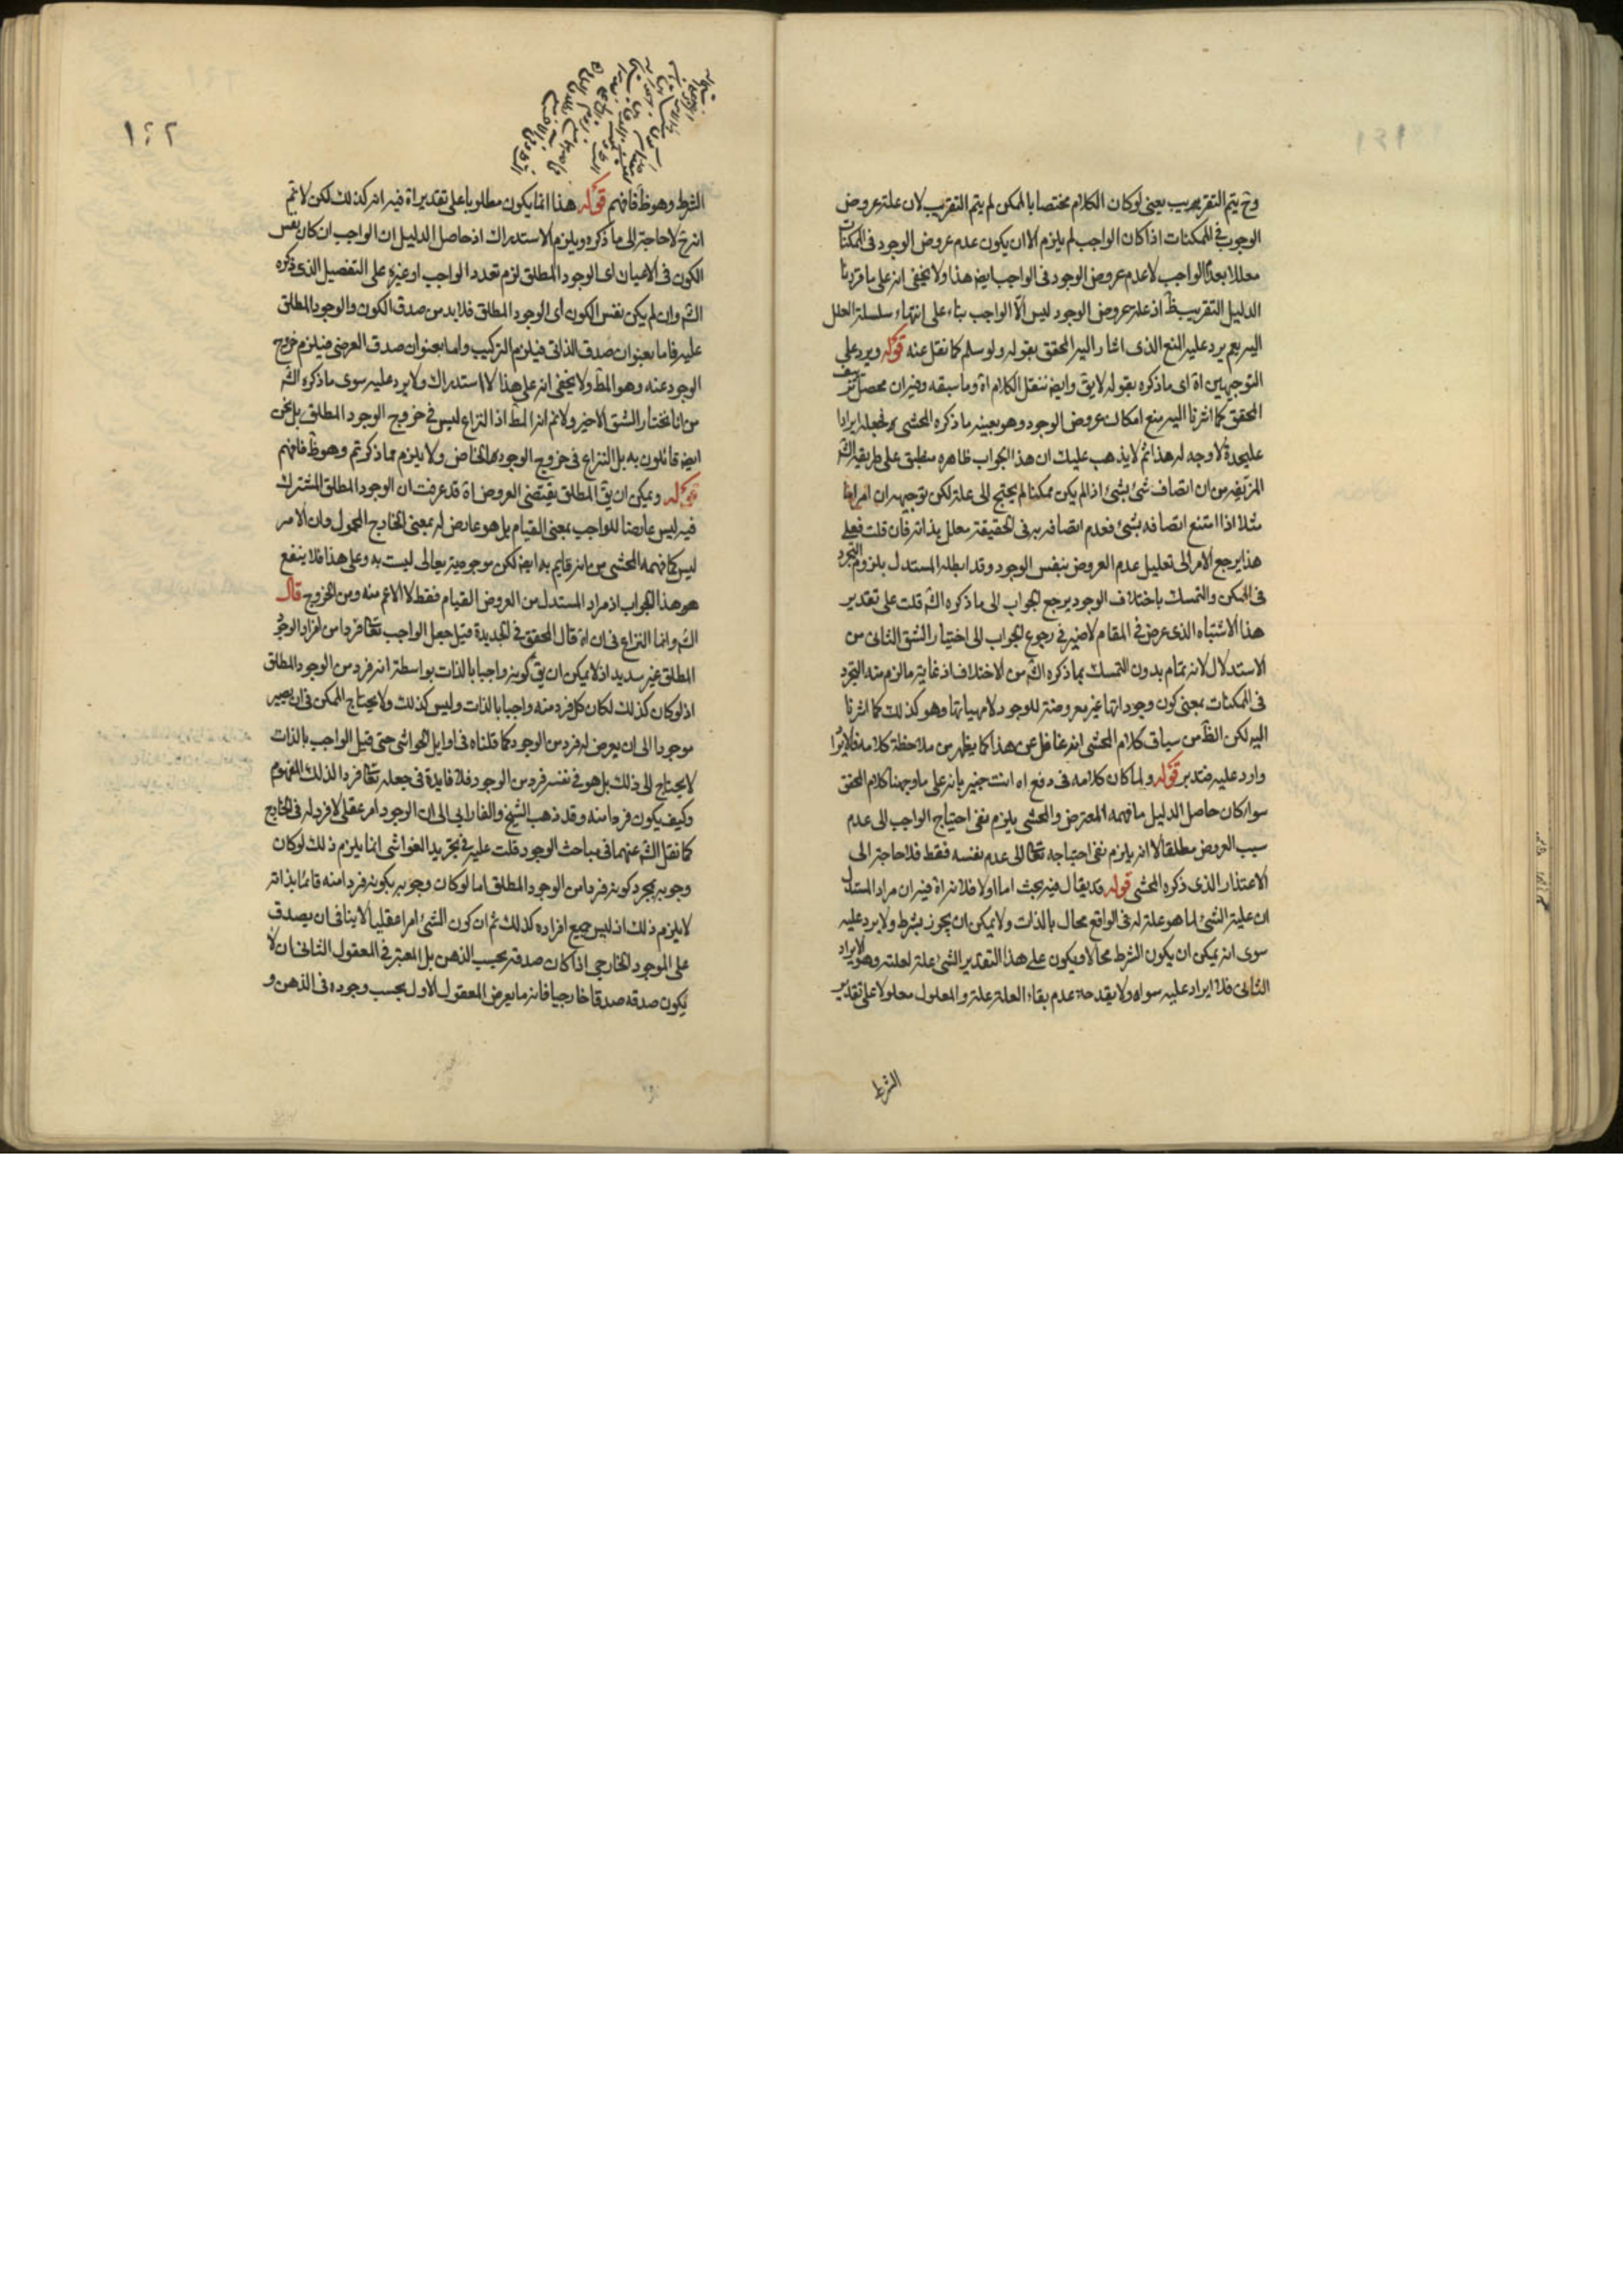 وح يتم التقريب يعنى لو كان الكلام مختصا بالممكن لم يتم التقريب لان علة عروض
الوجود فى الممكنات اذا كان الواجب لم يلزم الا ان يكون عدم عروض الوجود فى الممكنات
معللا بعدم الواجب لا عدم عروض الوجود فى الواجب ايضا هذا ولا يخفى انه على ما قررنا
الدليل التقريب ظ اذ علة عروض الوجود ليس الا الواجب بناء على انتهاء سلسلة العلل
اليه نعم يرد عليه المنع الذى اشار اليه المحقق بقوله ولو سلم كما نقل عنه قوله ويرد على
التوجيهين اه اى ما ذكره بقوله لا يق وايضا ننقل الكلام اه وما سبقه وفيه ان محصل
المحقق كما اشرنا اليه منع امكان عروض الوجود وهو بعينه ما ذكره المحشى فجعله ايرادا
عليحدة لا وجه له هذا ثم لا يذهب عليك ان هذا الجواب ظاهره منطبق على طريقة الش
المزيفة من ان اتصاف شئ بشئ اذا لم يكن ممكنا لم يحتج الى علة لكن توجيهه ان امرا
مثلا اذا امتنع اتصافه بشئ فعدم اتصافه به فى الحقيقة معلل بذاته فان قلت فعلى
هذا يرجع الامر الى تعليل عدم العروض بنفس الوجود وقد ابطله المستدل بلزوم التجرد
فى الممكن والتمسك باختلاف الوجود يرجع الجواب الى ما ذكره الش قلت على تقدير
هذا الاشتباه الذى عرض فى المقام لا ضير فى رجوع الجواب الى اختيار الشق الثانى من
الاستدلال لانه تمام بدون التمسك بما ذكره الش من الاختلاف اذ غاية ما لزم منه التجرد
فى الممكنات بمعنى كون وجوداتها غير معروضة للوجود لا مهياتها وهو كذلك كما اشرنا
اليه لكن الظ من سياق كلام المحشى انه غافل عن هذا كما يظهر من ملاحظة كلامه فالايراد
وارد عليه فتدبر قوله ولما كان كلامه فى دفع اه انت خبير بانه على ما وجهنا كلام المحقق
سواء كان حاصل الدليل ما فهمه المعترض والمحشى يلزم نفى احتياج الواجب الى عدم
سبب العروض مطلقا لا انه يلزم نفى احتياجه تعا الى عدم نفسه فقط فلا حاجة الى
الاعتذار الذى ذكره المحشى قوله قد يقال فيه بحث اما اولا فلانه اه فيه ان مراد المستدل
ان علية الشئ لما هو علة له فى الواقع محال بالذات ولا يمكن ان يجوز بشرط ولا يرد عليه
سوى انه يمكن ان يكون الشرط محالا ويكون على هذا التقدير الشئ علة لعلته وهو الايراد
الثانى فلا ايراد عليه سواه ولا يقدح عدم بقاء العلة علة والمعلول معلولا على تقدير
الشرط
١٤٢
الشرط وهو ظ فافهم قوله هذا انما يكون مطلوبا على تقدير اه فيه انه كذلك لكن لا تم
انه ح لا حاجة الى ما ذكره ويلزم الاستدراك اذ حاصل الدليل ان الواجب ان كان نفس
الكون فى الاعيان اى الوجود المطلق لزم تعدد الواجب او غيره على التفصيل الذى ذكره
الش وان لم يكن نفس الكون اى الوجود المطلق فلا بد من صدق الكون والوجود المطلق
عليه فاما بعنوان صدق الذاتى فيلزم التركيب واما بعنوان صدق العرضى فيلزم خروج
الوجود عنه وهو المط ولا يخفى انه على هذا لا استدراك ولا يرد عليه سوى ما ذكره الش
من انا نختار الشق الاخير ولا تم انه المط اذ النزاع ليس فى خروج الوجود المطلق بل نحن
ايضا قائلون به بل النزاع فى خروج الوجود الخاص ولا يلزم مما ذكرتم وهو ظ فافهم
قوله ويمكن ان يق المطلق يقتضى العروض اه قد عرفت ان الوجود المطلق المشترك
فيه ليس عارضا للواجب بمعنى القيام بل هو عارض له بمعنى الخارج المحمول وان الامر
ليس كما فهمه المحشى من انه قايم به ايضا لكن موجوديته تعالى ليست به وعلى هذا فلا ينفع
هو هذا الجواب اذ مراد المستدل من العروض القيام فقط لا الاعم منه ومن الخروج قال
الش وانما النزاع فى ان اه قال المحقق فى الجديدة قيل جعل الواجب تعا فردا من افراد الوجود
المطلق غير سديد اذ لا يمكن ان يق كونه واجبا بالذات بواسطة انه فرد من الوجود المطلق
اذ لو كان كذلك لكان كل فرد منه واجبا بالذات وليس كذلك ولا يحتاج الممكن فى ان يصير
موجودا الى ان يعرض له فرد من الوجود كما قلناه فى اوايل الحواشى حتى قيل الواجب بالذات
لا يحتاج الى ذلك بل هو فى نفسه فرد من الوجود فلا فايدة فى جعله تعا فردا لذلك المفهوم
وكيف يكون فردا منه وقد ذهب الشيخ والفارابى الى ان الوجود امر عقلى لا فرد له فى الخارج
كما نقل الش عنهما فى مباحث الوجود قلت عليه فى تجريد الغواشى انما يلزم ذلك لو كان
وجوبه بمجرد كونه فردا من الوجود المطلق اما لو كان وجوبه بكونه فردا منه قائما بذاته
لا يلزم ذلك اذ ليس جميع افراده كذلك ثم ان كون الشئ امرا عقليا لا ينافى ان يصدق
على الموجود الخارجى اذا كان صدقه بحسب الذهن بل المعتبر فى المعقول الثانى ان لا
يكون صدقه صدقا خارجيا فانه ما يعرض المعقول الاول بحسب وجوده فى الذهن و